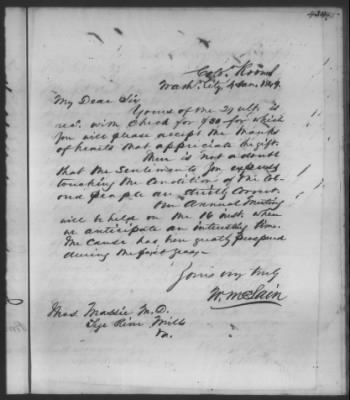 Colo. Rooms
Wash. City 4 Jan. 1849.
My Dear Sir
Yours of the 29 ult. is
rec. with check for $30 for which
you will please accept the thanks
of hearts that appreciate the gift.
There is not a doubt
that the sentiments you express
touching the condition of the col-
oured people are strictly correct.
Our Annual Meeting
will be held on the 16 inst. when
we anticipate an interesting time.
The cause has been greatly prospered
during the past year.
Yours very truly
W. McLain
Thos. Massie M.D.
Tye River Mills
Va.